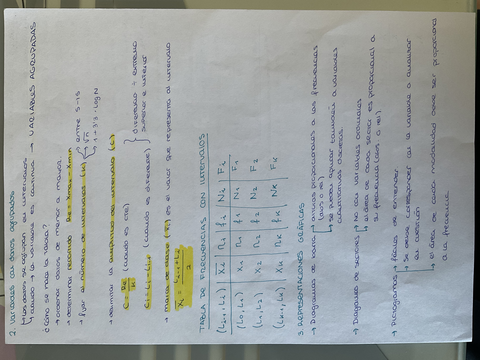 2. Variables con datos agrupados
↳ los datos se agrupan en intervalos
cuando la variable es continua → VARIABLES AGRUPADAS
¿Cómo se hace la tabla?
→ ordenar datos de menor a mayor.
→ determinar recorrido Re = xmax - xmin
→ fijar el número de intervalos (K)
entre 5-15
√n
1 + 3'3 · log N
→ determinar la amplitud de intervalo (C)
C = Re / K (cuando es cte)
Ci = Li - Li-1 (cuando es diferente)
diferencia entre extremo
superior e inferior
→ marca de clase (xi) es el valor que representa al intervalo
xi = Li-1 + Li / 2
TABLA DE FRECUENCIAS CON INTERVALOS
(Li-1, Li) | Xi | ni | fi | Ni | Fi
(L0, L1) X1 n1 f1 N1 F1
(L1, L2) X2 n2 f2 N2 F2
(LK-1, LK) XK nK fK NK FK
3. REPRESENTACIONES GRÁFICAS
→ Diagramas de barra
alturas proporcionales a las frecuencias
(abs. o re.)
se pueden aplicar también a variables
cuantitativas discretas
→ Diagrama de sectores
para variables nominales
el área de cada sector es proporcional a
su frecuencia (abs. o re.)
→ Pictogramas
fáciles de entender.
se deben corresponder con la variable a analizar
en cuestión
el área de cada modalidad debe ser proporcional
a la frecuencia